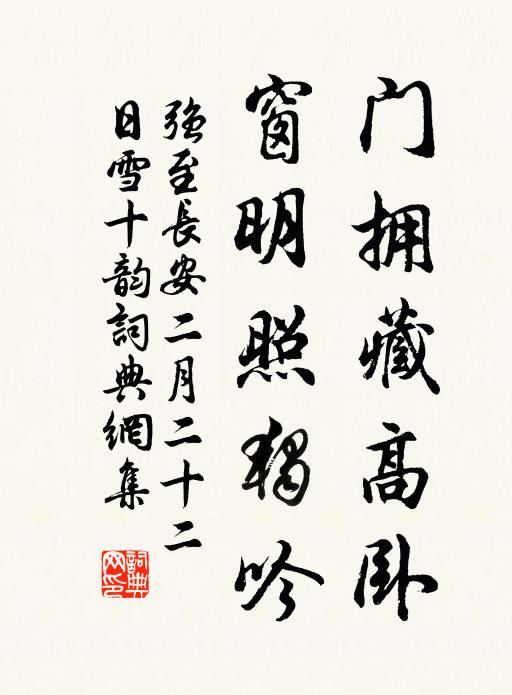 门拥藏高卧
窗明照独吟
强至长安二月二十二
日雪十韵词典网集
词典网印